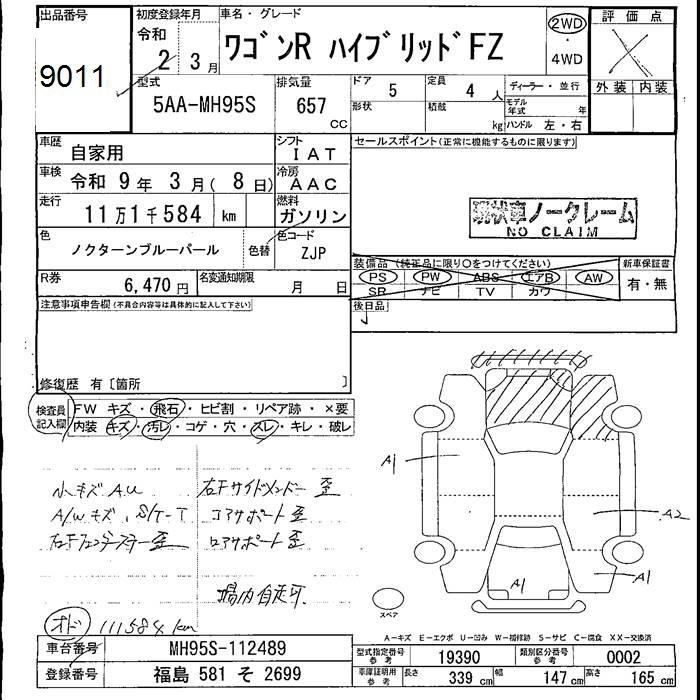 出品番号
9011
初度登録年月
令和
2 3 月
車名・グレード
ワゴンR ハイブリッド FZ
2WD
・
4WD
評価点
外装 内装
型式
5AA-MH95S
排気量
657
CC
ドア 5
形状
定員 4 人
積載
kg
ディーラー・並行
モデル年式 年
ハンドル 左・右
車歴
自家用
シフト
IAT
車検
令和 9年 3月( 8日)
冷房
AAC
走行
11万1千584 km
燃料
ガソリン
色
ノクターンブルーパール
色替
色コード
ZJP
R券
6,470円
名変通知期限
月 日
セールスポイント(正常に機能するものに限ります)
現状車ノークレーム
NO CLAIM
装備品(純正品に限り○をつけてください)
PS PW ABS エアB AW
SR ナビ TV カワ
新車保証書
有・無
後日品
注意事項申告欄(不具合内容等は具体的に記入して下さい)
修復歴 有〔箇所 〕
検査員
記入欄
FW キズ・飛石・ヒビ割・リペア跡・×要
内装・キズ・汚レ・コゲ・穴・スレ・キレ・破レ
小キズ A.U
A/Wキズ、S/T-T
右Fサイドメンバー歪
コアサポート歪
ロアサポート歪
場内自走可
オド 111584 km
A1
A2
A1
A1
スペア
A-キズ E-エクボ U-凹み W-補修跡 S-サビ C-腐食 XX-交換済
車台番号
MH95S-112489
登録番号
福島 581 そ 2699
型式指定番号
参考
19390
類別区分番号
参考
0002
車庫証明用
参考
長さ 339 cm
幅 147 cm
高さ 165 cm